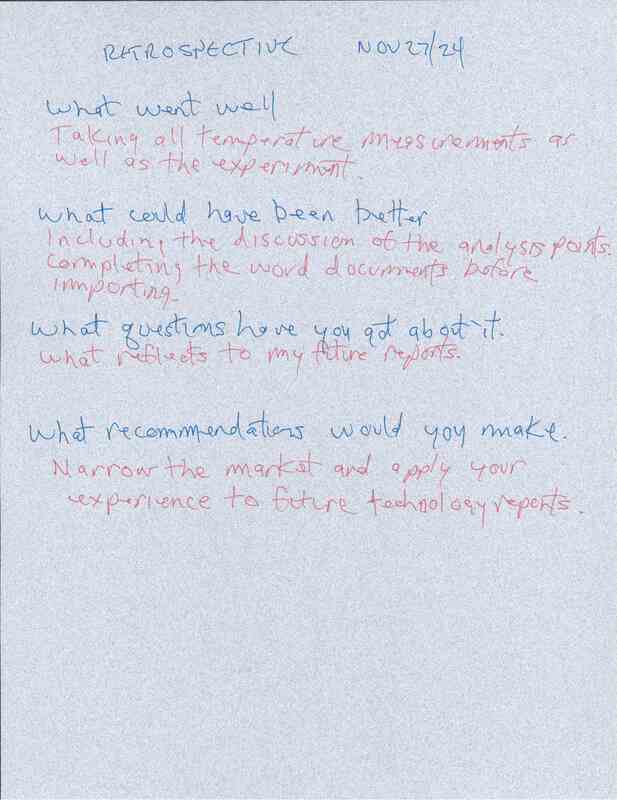 RETROSPECTIVE NOV 27/24
What went well
Taking all temperature measurements as
well as the experiment.
What could have been better
Including the discussion of the analysis points.
Completing the word documents before
importing.
What questions have you got about it.
What reflects to my future reports.
What recommendations would you make.
Narrow the market and apply your
experience to future technology reports.